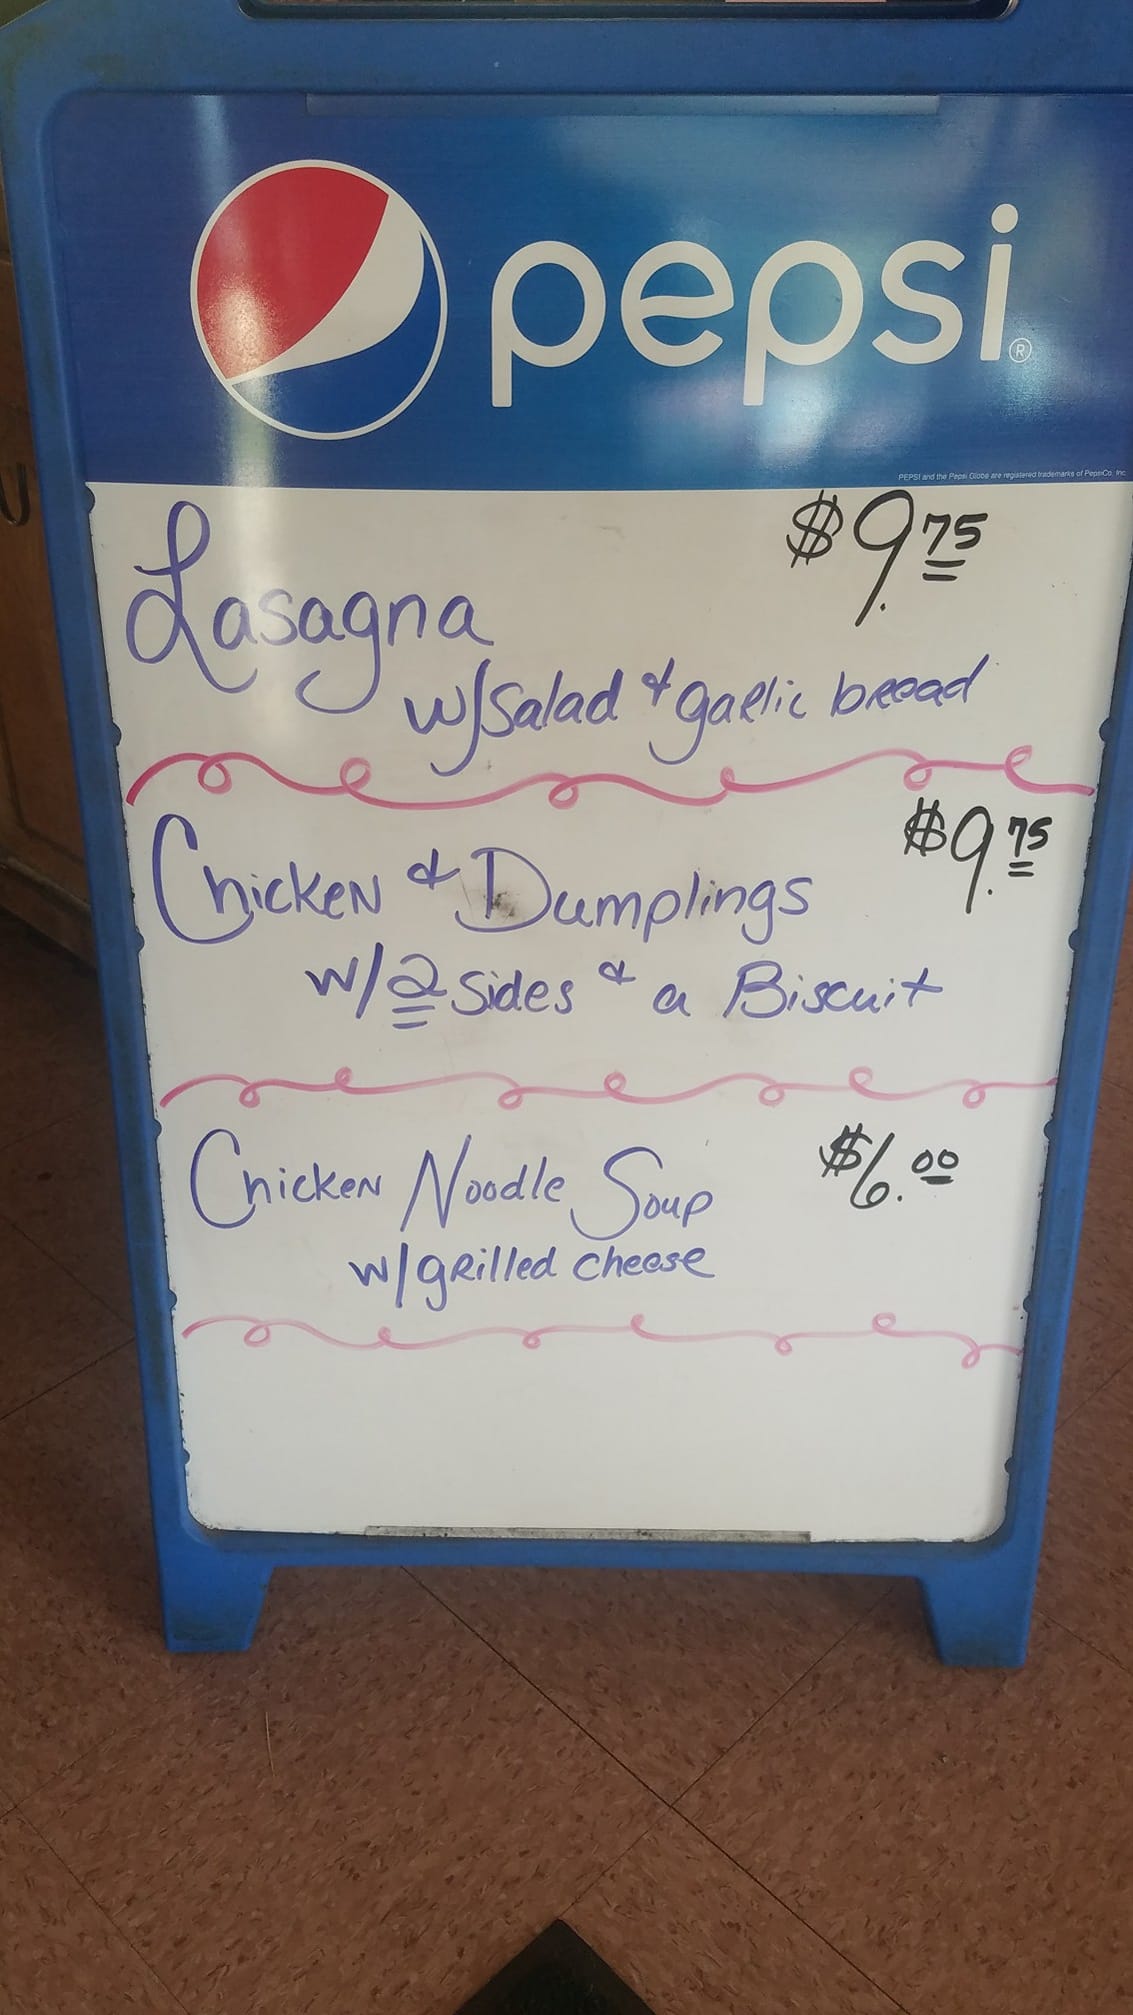 pepsi®
PEPSI and the Pepsi Globe are registered trademarks of PepsiCo, Inc.
$9.75
Lasagna
w/Salad & garlic bread
$9.75
Chicken & Dumplings
w/2 Sides & a Biscuit
Chicken Noodle Soup $6.00
w/grilled cheese